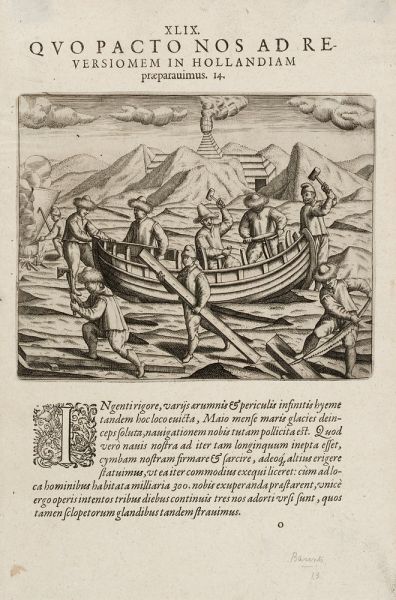 XLIX.
QVO PACTO NOS AD RE-
VERSIOMEM IN HOLLANDIAM
præparauimus. 14.
INgenti rigore, varijs ærumnis & periculis infinitis hyeme
tandem hoc loco euicta, Maio mense maris glacies dein-
ceps soluta, nauigationem nobis tutam pollicita est. Quod
verò nauis nostra ad iter tam longinquum inepta esset,
cymbam nostram firmare & sarcire, adeoq, altius erigere
statuimus, vt ea iter commodius exequi liceret: cùm ad lo-
ca hominibus habitata milliaria 300. nobis exuperanda præstarent, vnicè
ergo operis intentos tribus diebus continuis tres nos adorti vrsi sunt, quos
tamen sclopetorum glandibus tandem strauimus.
o
13